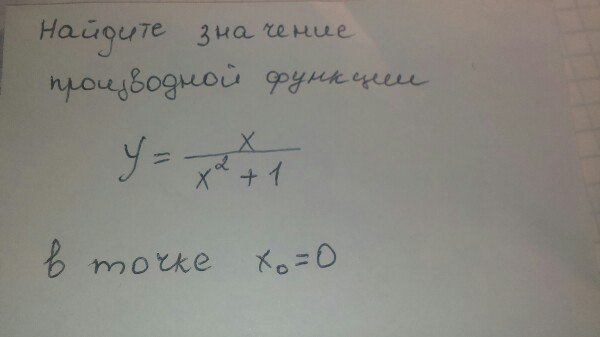 Найдите значение
производной функции
y = x / (x² + 1)
в точке x₀=0